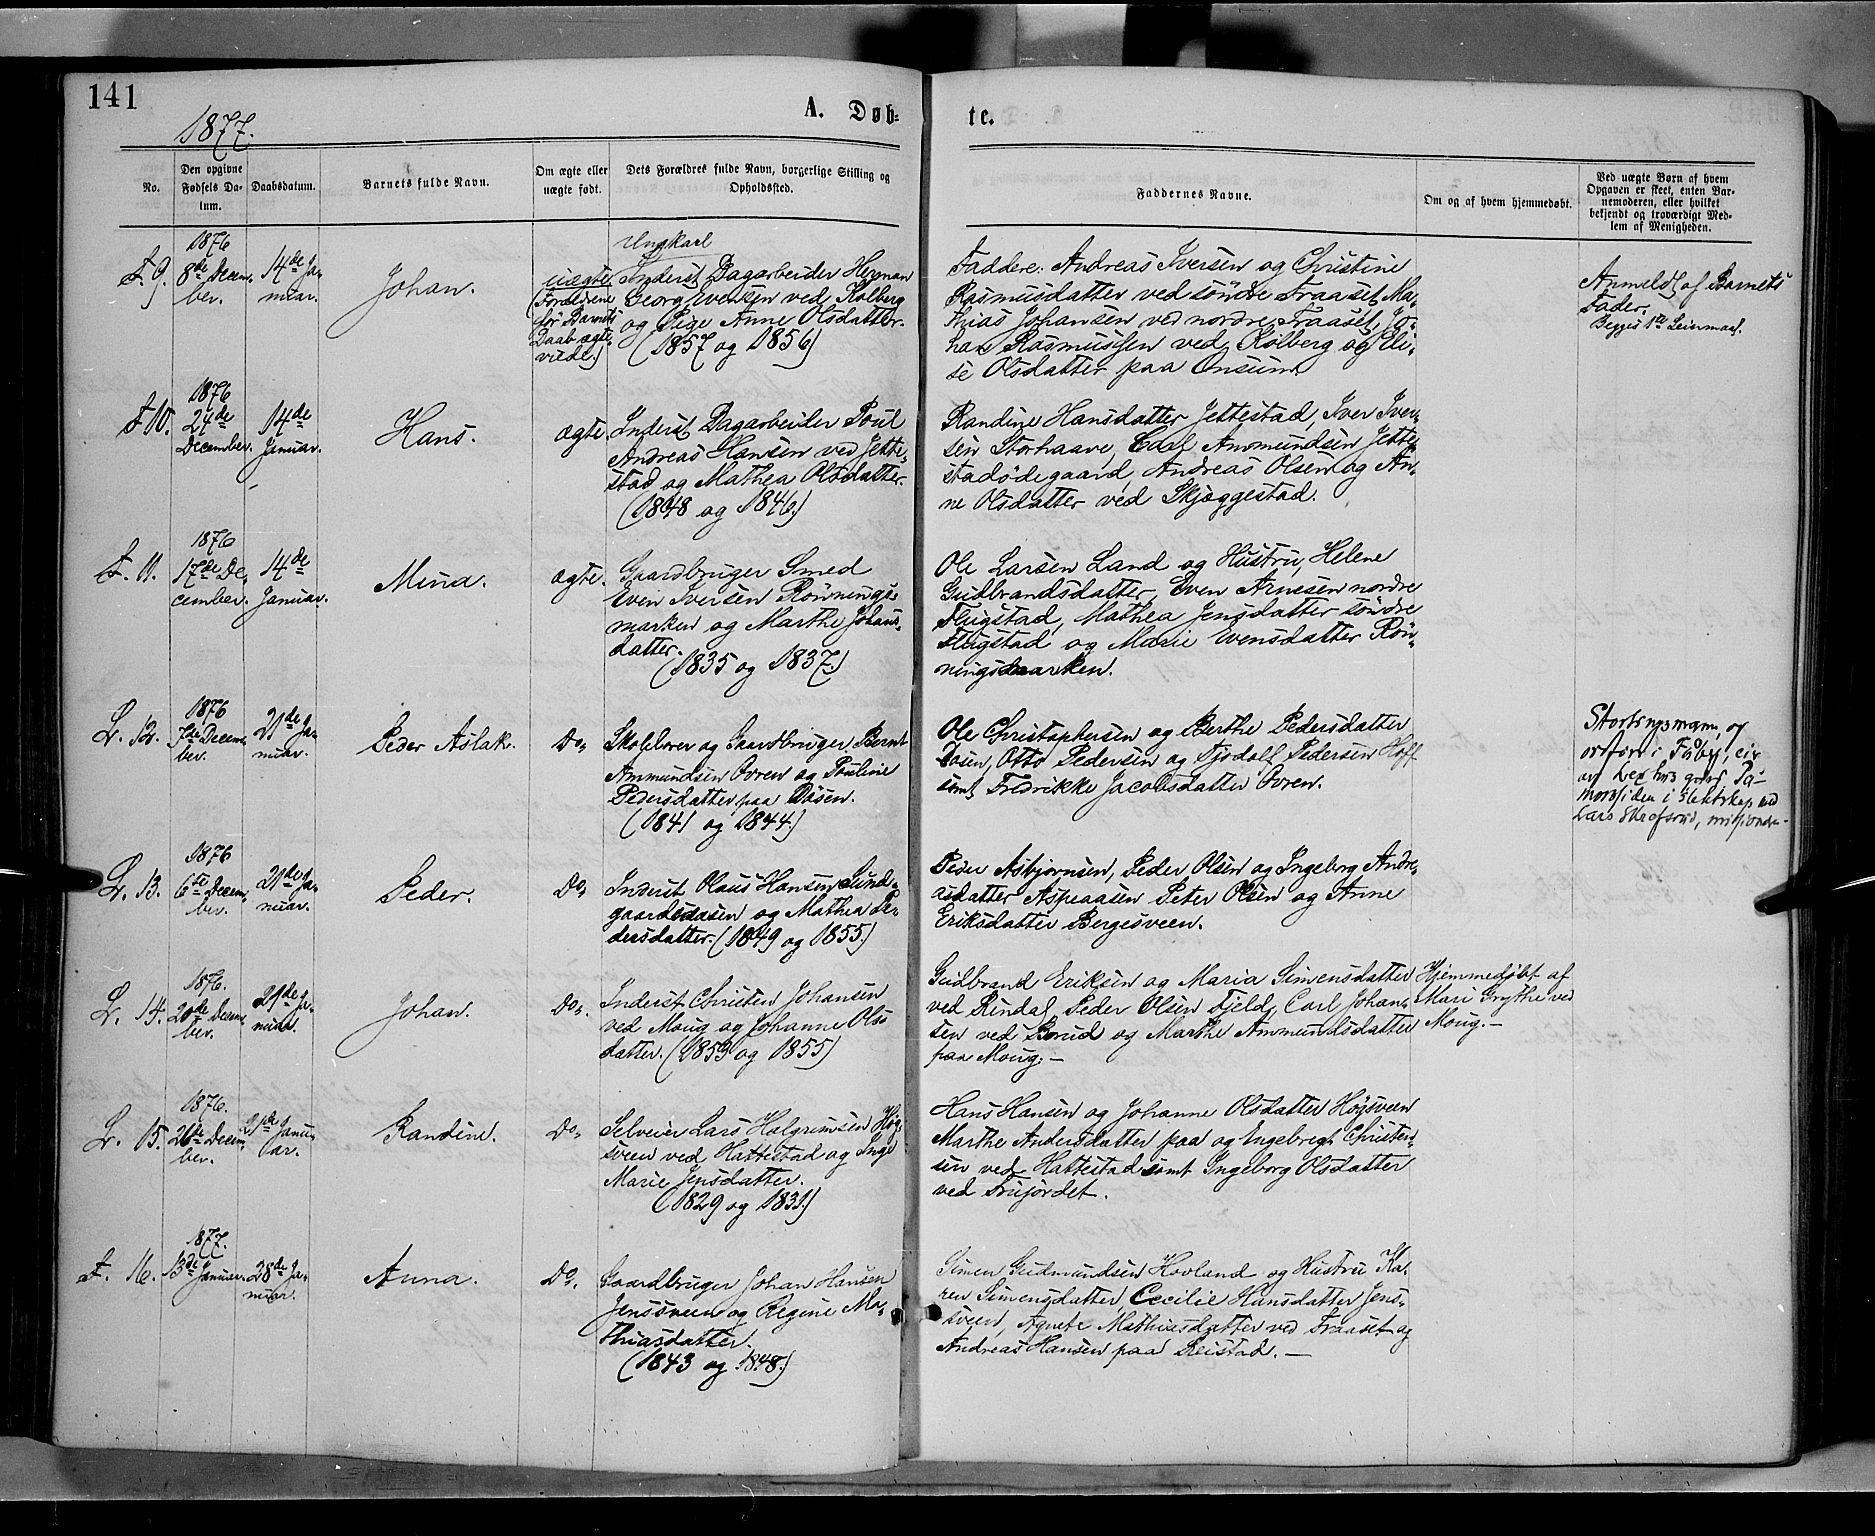 141
1877.
A. Døb-
te.
No.
Den opgivne
Fødsels Da-
tum.
Daabsdatum.
Barnets fulde Navn.
Om ægte eller
uægte født.
Dets Forældres fulde Navn, borgerlige Stilling og
Opholdssted.
Faddernes Navne.
Om og af hvem hjemmedøbt.
Ved uægte Børn af hvem
Opgaven er skeet, enten Bar-
nemoderen, eller hvilket
bekjendt og troværdigt Med-
lem af Menigheden.
F. 9.
1876
8de Decem-
ber.
14de Ja-
nuar.
Johan.
uægte
(Forældrene
før Barnets
Daab ægte-
viede)
Ungkarl
Inderst Dagarbeider Herman
Georg Evensen ved Kolberg
og Pige Anne Olsdatter.
(1857 og 1856)
Faddere: Andreas Iversen og Christine
Rasmusdatter ved söndre Fraaset, Ma-
thias Johansen ved nordre Fraaset, Jo-
han Rasmussen ved Kolberg og Eli-
se Olsdatter paa Onsum.
Anmeldt af Barnets
Fader.
Begges 1ste Leiermaal.
F. 10.
1876
24de
December.
14de
Januar.
Hans.
ægte.
Inderst Dagarbeider Poul
Andreas Hansen ved Jette-
stad og Mathea Olsdatter.
(1848 og 1846.)
Randine Hansdatter Jettestad, Iver Iver-
sen Storhaave, Carl Ammundsen Jette-
stadödegaard, Andreas Olsen og An-
ne Olsdatter ved Skjæggestad.
F. 11.
1876
17de De-
cember.
14de
Januar.
Mina.
ægte.
Gaardbruger Smed
Even Iversen Rönnings-
marken og Marthe Johans-
datter.
(1835 og 1837.)
Ole Larsen Land og Hustru Helene
Gudbrandsdatter, Even Arnesen nordre
Flugstad, Mathea Jensdatter söndre
Flugstad og Marie Evensdatter Rön-
ningsmarken.
L. 12.
1876
7de Decem-
ber.
21de Ja-
nuar.
Peder Aslak.
Do.
Skolelærer og Gaardbruger Bernt
Ammundsen Ovren og Pouline
Pedersdatter paa Dösen.
(1841 og 1844.)
Ole Christophersen og Berthe Pedersdatter
Dösen, Otto Pedersen og Fjodolf Pedersen Hoff
samt Fredrikke Jacobsdatter Ovren.
Stortingsmann, og
ordfører i Fåberg, eier
av
morssiden i slektskap med
Lars Skrefsrud, misjonær.
L. 13.
1876
6te Decem-
ber.
21de Ja-
nuar.
Peder.
Do.
Inderst Olaus Hansen Lund-
gaardsdasen og Mathea Pe-
dersdatter. (1849 og 1855.)
Peder Asbjørnsen, Peder Olsen og Ingeborg Andre-
asdatter Aspeaasen, Peter Olsen og Anne
Eriksdatter Bergesveen.
L. 14.
1876.
20de Decem-
ber.
21de Ja-
nuar.
Johan.
Do.
Inderst Christen Johansen
ved Moug og Johanne Ols-
datter. (1853 og 1855)
Gudbrand Eriksen og Maria Simensdatter
ved Rindal, Peder Olsen Fjeld, Carl Johan-
sen ved Brud og Marthe Ammundsdatter
paa Moug. —
Hjemmedøbt af
Mari Grythe ved
Moug. —
L. 15.
1876.
26de Decem-
ber.
21de Janu-
ar.
Randine.
Do.
Selveier Lars Halgrimsen Høg-
sveen ved Hattestad og Inge
Marie Jensdatter.
(1829 og 1831.)
Hans Hansen og Johanne Olsdatter Högsveen
Marthe Andersdatter paa og Engebregt Christen-
sen ved Hattestad samt Ingeborg Olsdatter
ved Trujordet.
F. 16.
1877.
13de Januar.
28de Ja-
nuar.
Anna.
Do.
Gaardbruger Johan Hansen
Jenssveen og Regine Ma-
thiasdatter.
(1843 og 1848.)
Simen Gudmundsen Hovland og Hustru Ka-
ren Simensdatter, Cecilie Hansdatter Jens-
sveen, Agnete Mathiasdatter ved Fraaset og
Andreas Hansen paa Reistad. —